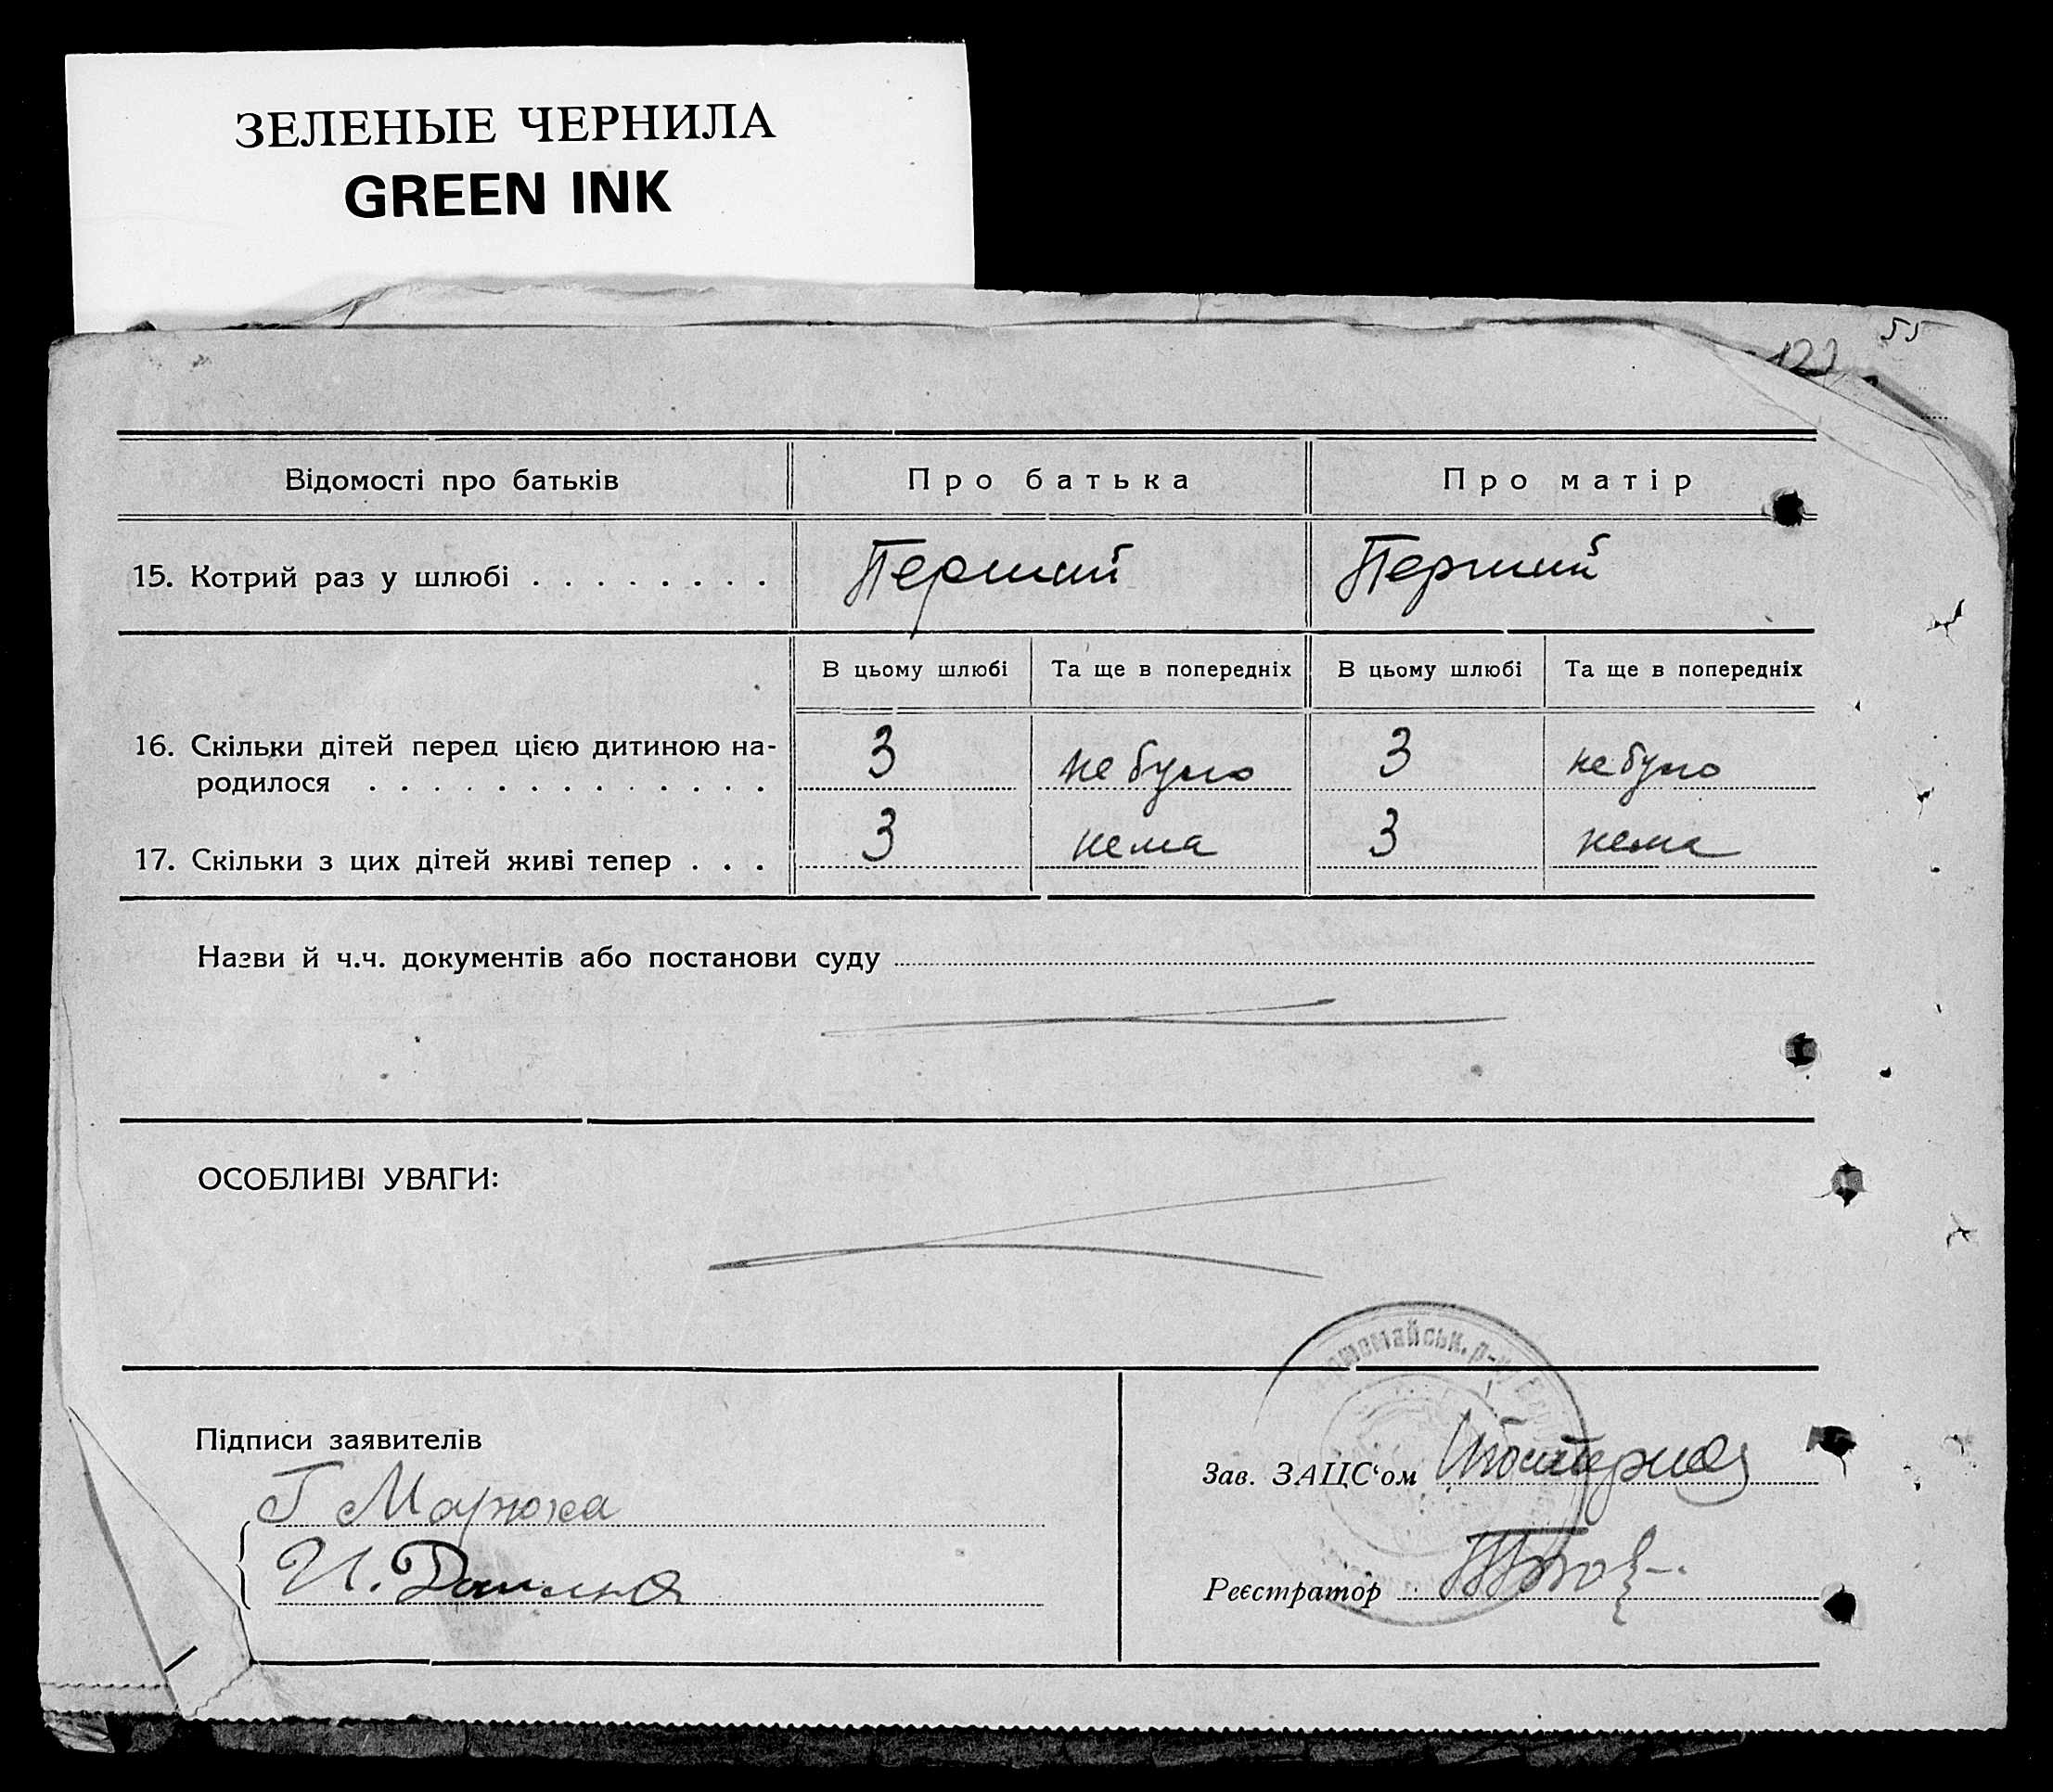 ЗЕЛЕНЫЕ ЧЕРНИЛА
GREEN INK
55
Відомості про батьків Про батька Про матір
15. Котрий раз у шлюбі . . . . . . . . Перший Перший
В цьому шлюбі Та ще в попередніх В цьому шлюбі Та ще в попередніх
16. Скільки дітей перед цією дитиною на-
родилося . . . . . . . . . . . . . . 3 не було 3 не було
17. Скільки з цих дітей живі тепер . . . 3 нема 3 нема
Назви й ч.ч. документів або постанови суду
ОСОБЛИВІ УВАГИ:
Підписи заявителів
Г Марюха
И.
Зав. ЗАЦС‘ом
Реєстратор